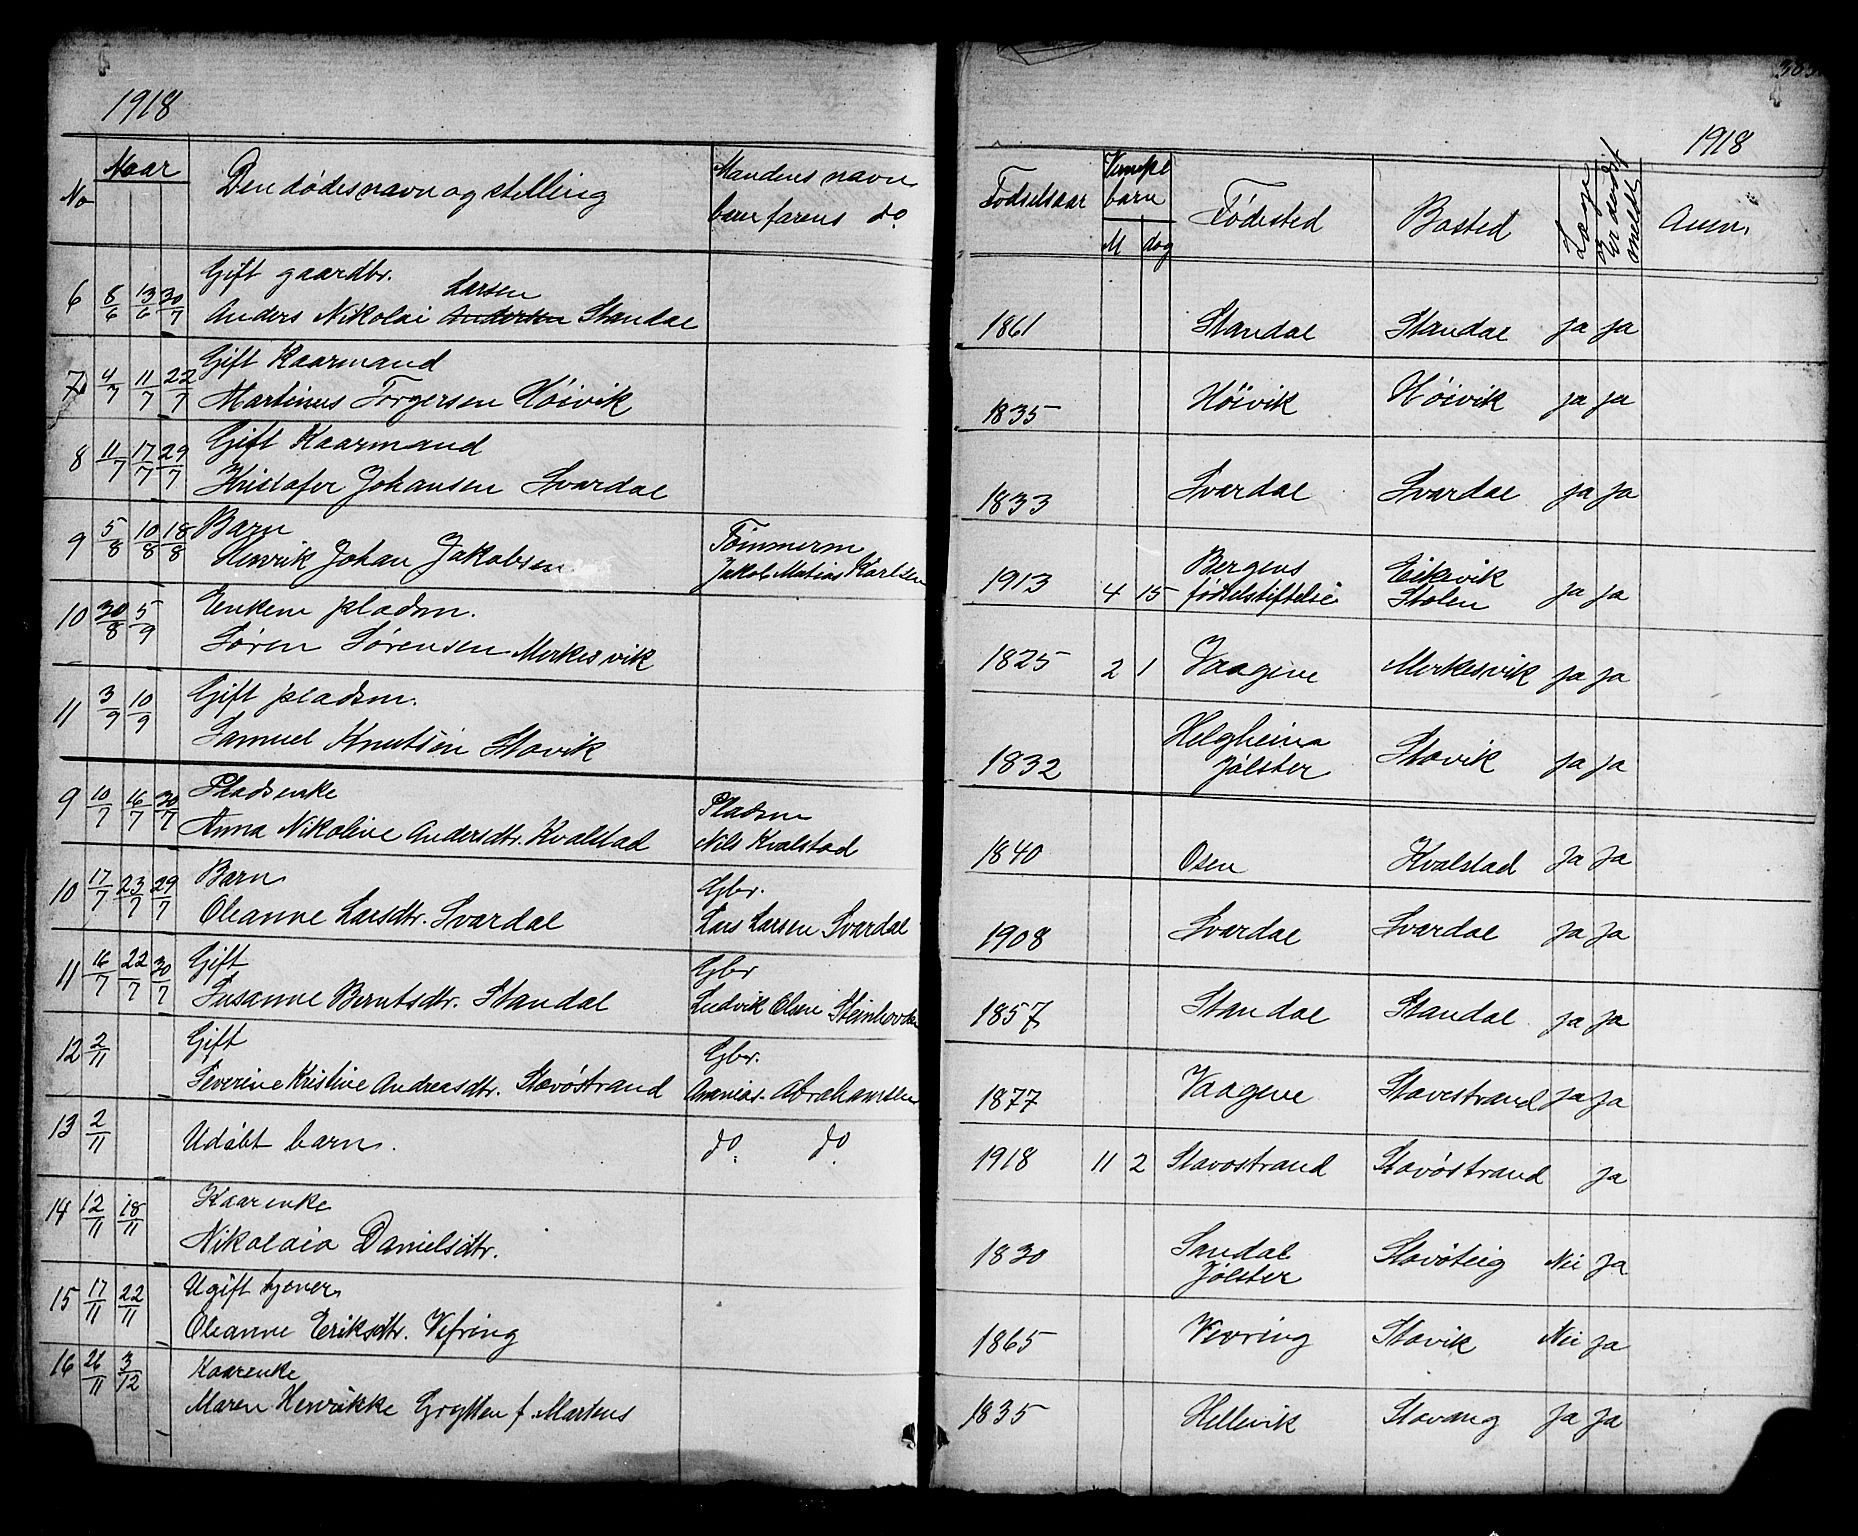 1918
No Naar Den dødes navn og stelling Mandens navn
barn farens do.
Gift gaardbr.
Larsen
6 8/6 13/6 30/7 Anders Nikolai Andersen Standal
Gift Kaarmand
7 4/7 11/7 22/7 Martinus Torgersen Høivik
Gift Kaarmand
8 11/7 17/7 29/7 Kristofer Johansen Svardal
Barn Tømmerm
9 5/8 10/8 18/8 Henrik Johan Jakobsen Jakob Matias Karlsen
Enkem pladsm.
10 30/8 5/9 Søren Sørensen Merkesvik
Gift pladsm.
11 3/9 10/9 Samuel Knutsen Stavik
Pladsenke Pladsm
9 10/7 16/7 30/7 Anna Nikoline Andersdtr. Kvalstad Nils Kvalstad
Barn Gbr.
10 17/7 23/7 29/7 Oleanne Larsdtr. Svardal Lars Larsen Svardal
Gift Gbr
11 16/7 22/7 30/7 Susanne Berntsdtr. Standal Ludvik Olsen Steinhovden
Gift Gbr.
12 2/11 Severine Kristine Andreasdtr. Stavøstrand Ananias Abrahamsen
13 2/11 Udøbt barn. do do
Kaarenke
14 12/11 18/11 Nikolaia Danielsdtr.
Ugift tjener
15 17/11 22/11 Oleanne Eriksdtr. Vefring
Kaarenke
16 26/11 3/12 Maren Henrikke Grytten f. Martens
1918
Fødselsaar barn Fødested Bosted Læge Er dødsf. meldt Anm.
M dag
1861 Standal Standal ja ja
1835 Høivik Høivik ja ja
1833 Svardal Svardal ja ja
Bergens Eikevik
1913 4 15 fødselstiftelse Stolen ja ja
1825 2 1 Vaagene Merkesvik ja ja
Helgheim
1832 Jølster Stavik ja ja
1840 Osen Kvalstad ja ja
1908 Svardal Svardal ja ja
1857 Standal Standal ja ja
1877 Vaagene Stavestrand ja ja
1918 11 2 Stavostrand Stavøstrand ja
Sandal
1830 Jølster Stavøteig Nei ja
1865 Vevring Stavik Nei ja
1835 Hellevik Stavang ja ja